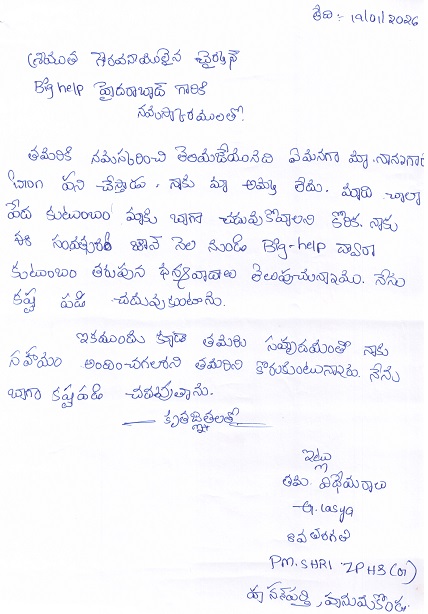 తేది :- 19/01/2026
శ్రీయుత గౌరవనీయులైన చైర్మన్
Big help హైదరాబాద్ గారికి
నమస్కారములతో.
తమరికి నమస్కరించి తెలియజేయునది ఏమనగా మా నాన్నగారు
పని చేస్తాడు. నాకు మా అమ్మ లేదు. మాది చాలా
పేద కుటుంబం మాకు బాగా చదువుకోవాలని కోరిక. నాకు
ఈ సంవత్సరం జూన్ నెల నుండి Big-help ద్వారా
కుటుంబం తరుపున ధన్యవాదాలు తెలుపుచున్నాము. నేను
కష్ట పడి చదువుకుంటాను.
ఇకముందు కూడా తమరు సహృదయంతో నాకు
సహాయం అందించగలరని తమరిని కోరుకుంటున్నాను. నేను
బాగా కష్టపడి చదువుతాను.
కృతజ్ఞతలతో
ఇట్లు
తమ విధేయురాలు
G. Lasya
8వ తరగతి
PM. SHRI ZPHS (O)
హనుమకొండ.